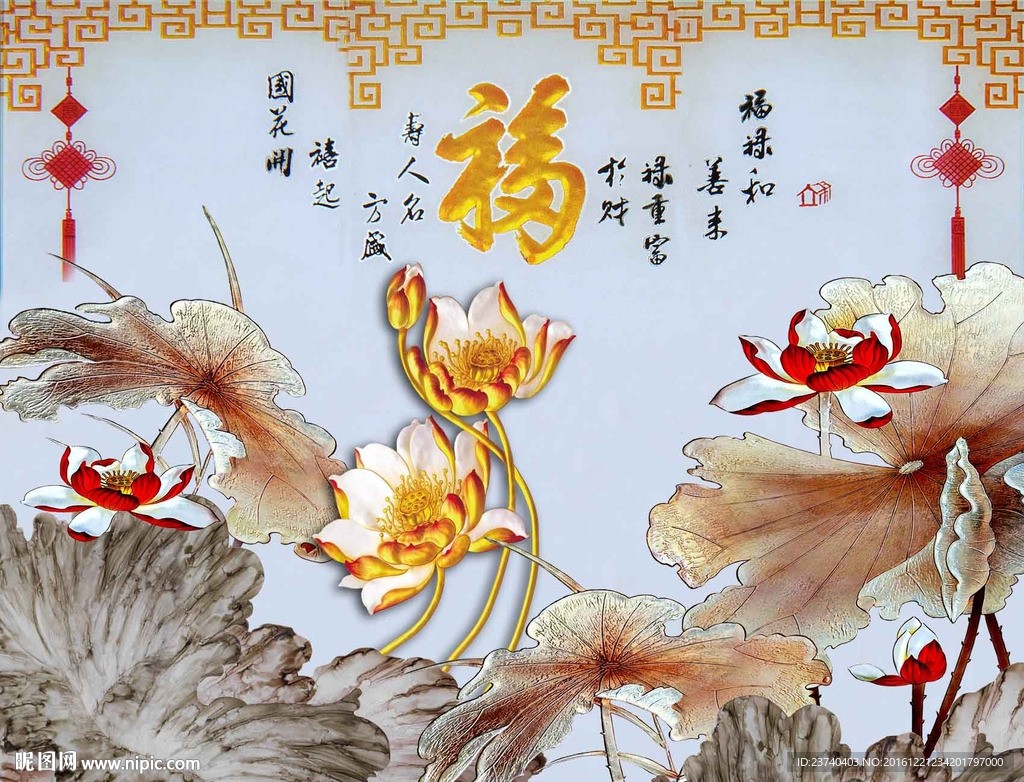 福禄和
善来
禄重富
於财
福
寿人名
方盛
禧起
國花開
昵图网 www.nipic.com
ID:23740403,NO:20161221234201797000